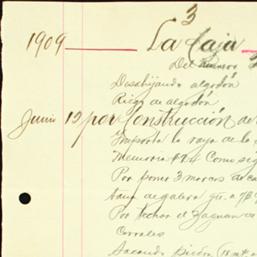 3
1909 La Caja
Del
Desahijando algodón
Riego de algodón
Junio 12 por Construcción de
Importe la raya de la
Memoria #24 Como sig
Por poner 3 marcos de ca
de galera
Por techar el Zaguan de
Corrales
Sacando